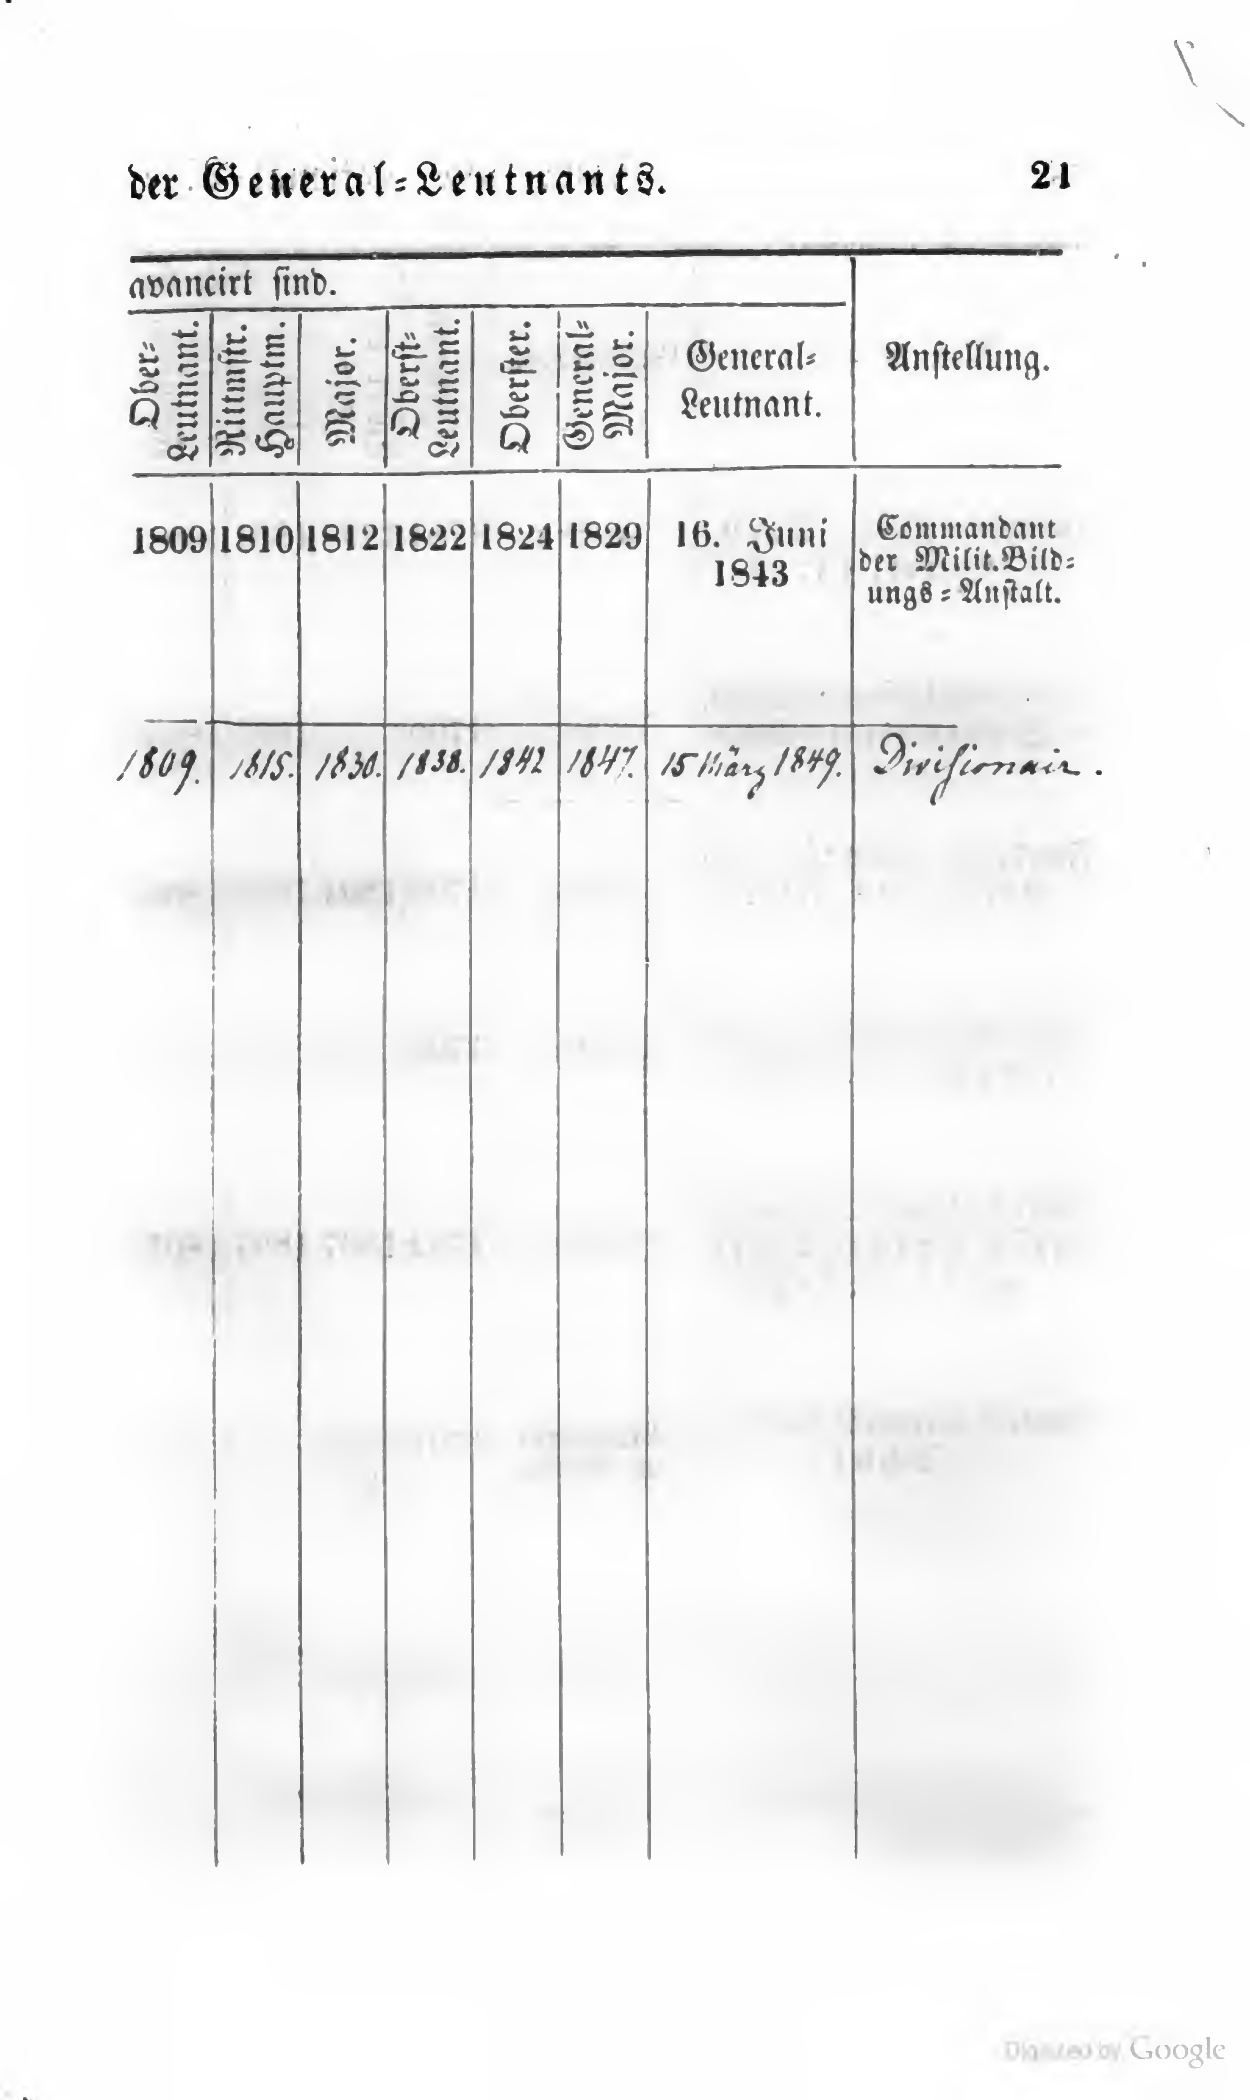 der General=Leutnants. 21
avancirt sind.
Ober=
Leutnant.
Rittmstr.
Hauptm.
Major.
Oberst=
Leutnant.
Oberster.
General=
Major.
General=
Leutnant.
Anstellung.
1809 1810 1812 1822 1824 1829 16. Juni
1843
Commandant
der Milit.Bild=
ungs=Anstalt.
1809. 1815. 1830. 1838. 1842 1847. 15 März 1849. Divisionair.
Digitized by Google